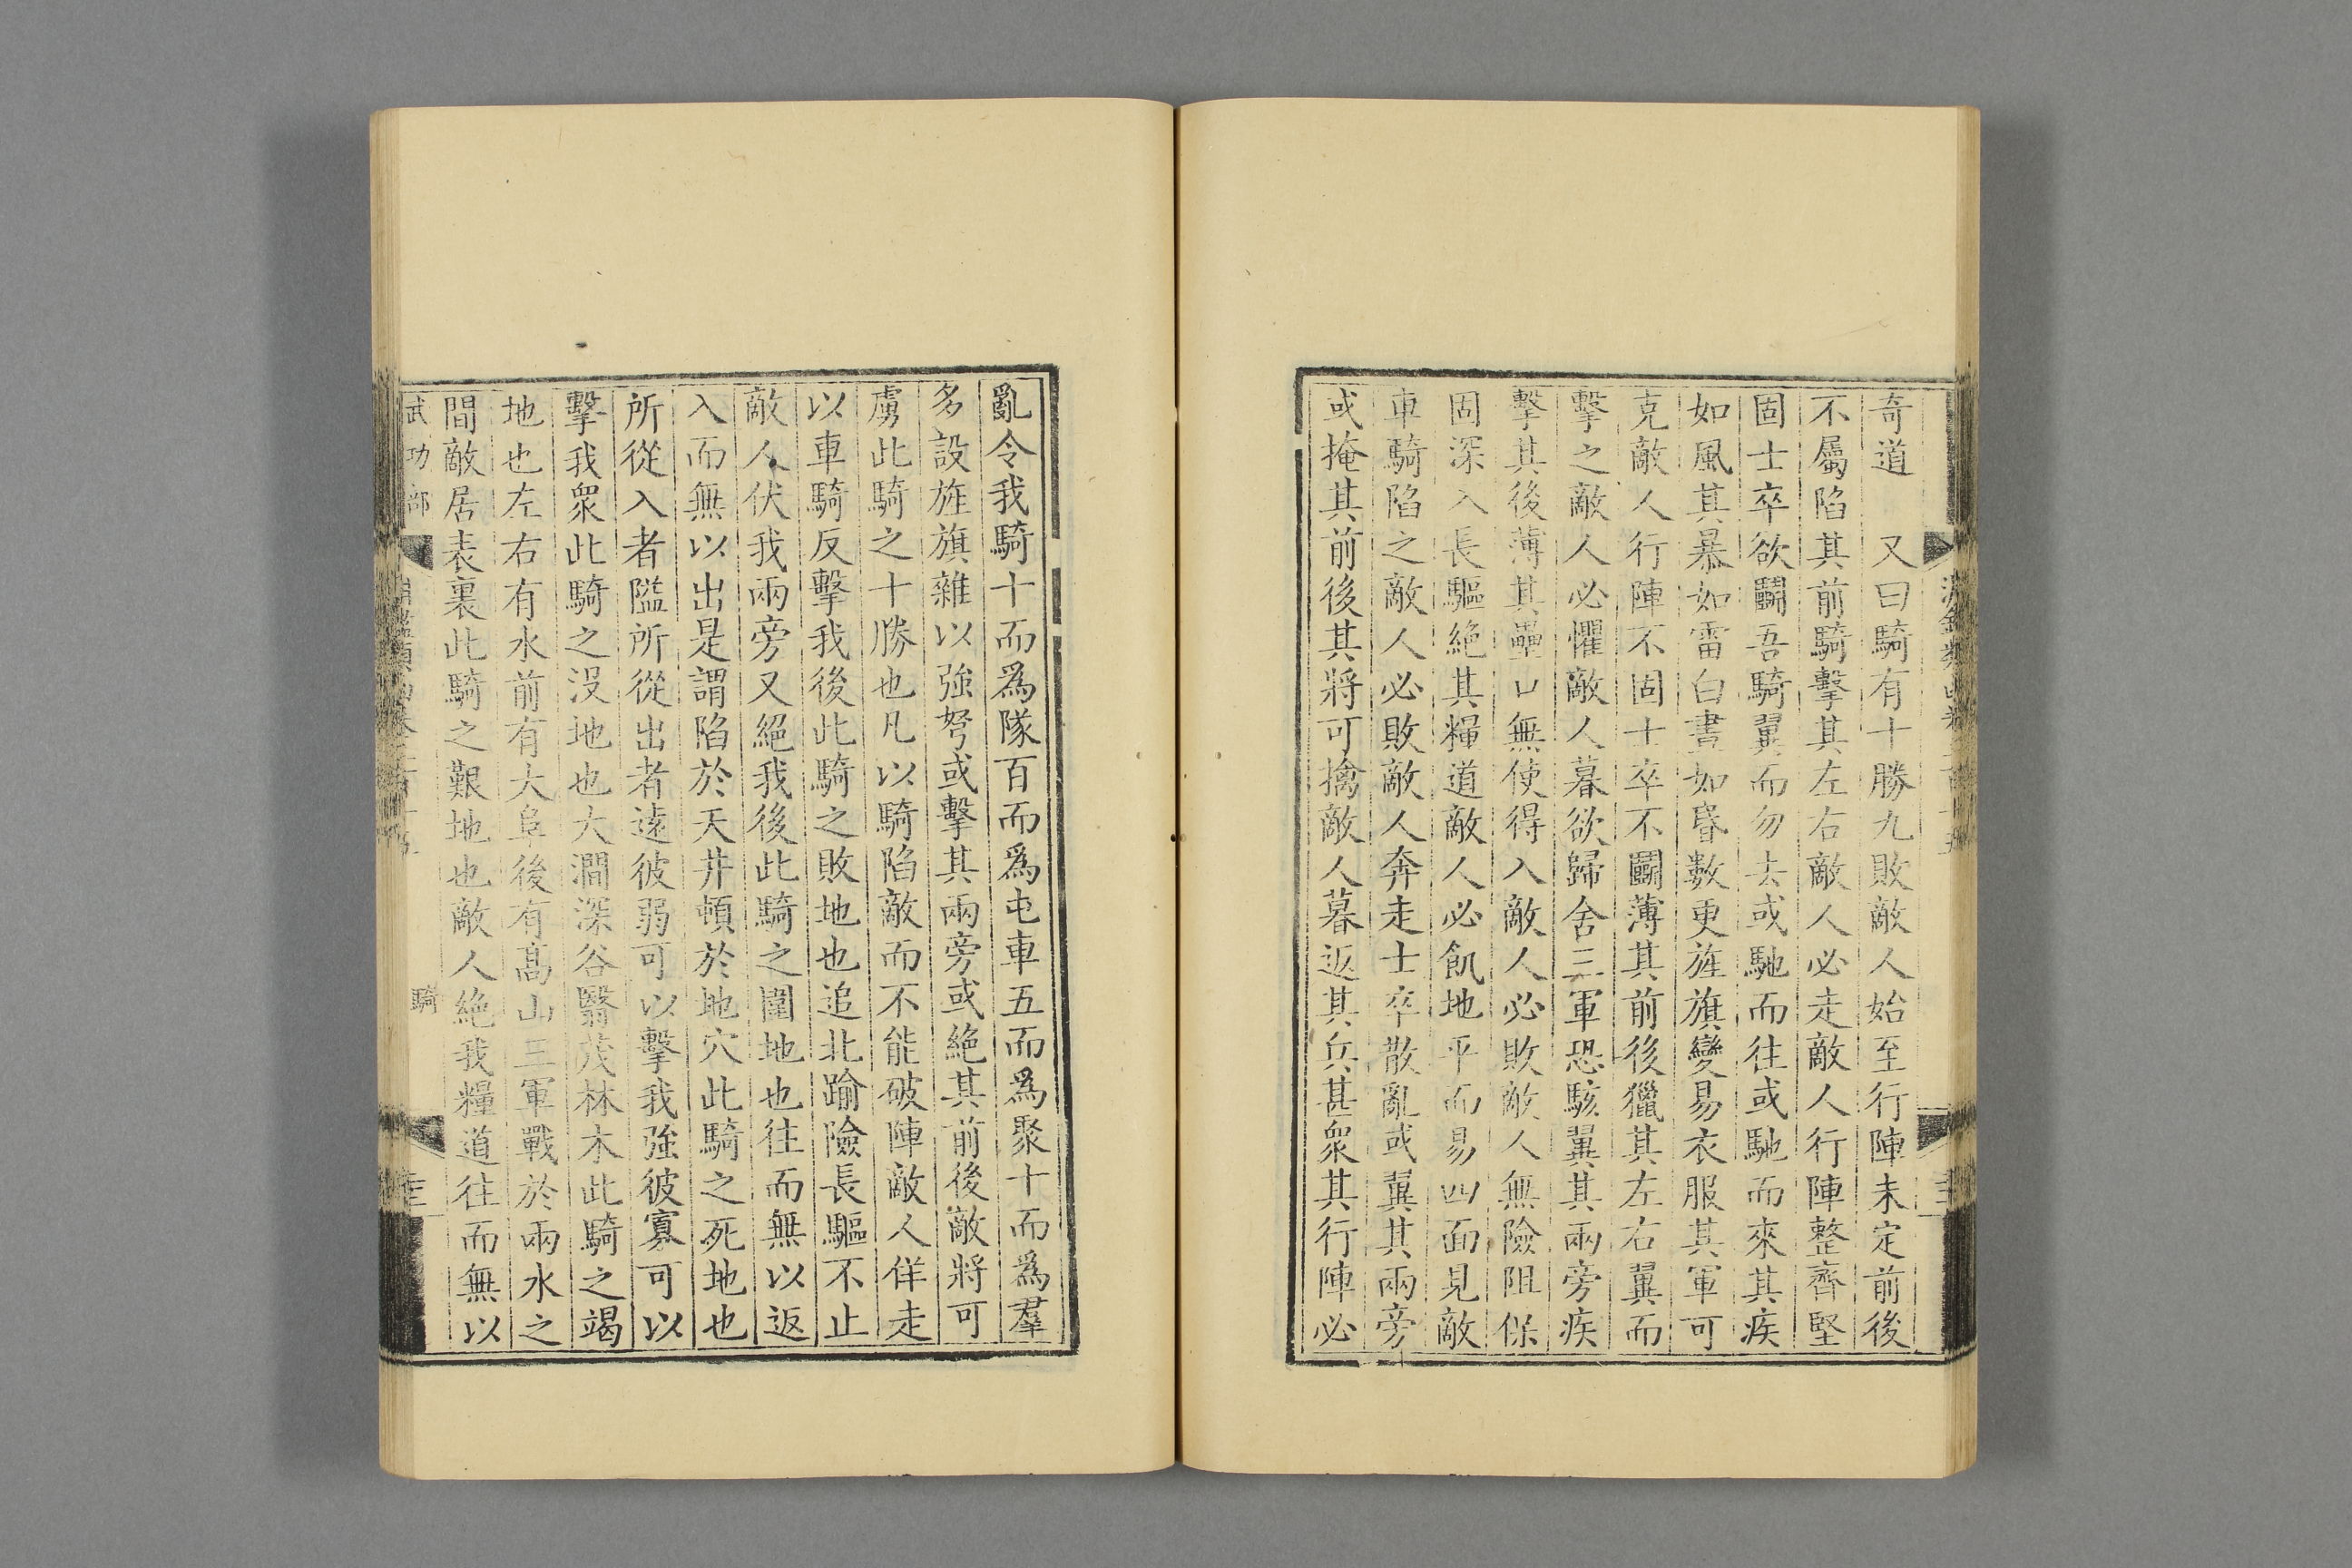 奇道　又曰騎有十勝九敗敵人始至行陣未定前後
不屬陷其前騎擊其左右敵人必走敵人行陣整齊堅
固士卒欲鬭吾騎翼而勿去或馳而往或馳而來其疾
如風其暴如雷白晝如昏數更旌旗變易衣服其軍可
克敵人行陣不固士卒不鬭薄其前後獵其左右翼而
擊之敵人必懼敵人暮欲歸舍三軍恐駭翼其兩旁疾
擊其後薄其壘口無使得入敵人必敗敵人無險阻保
固深入長驅絕其糧道敵人必飢地平而易四面見敵
車騎陷之敵人必敗敵人奔走士卒散亂或翼其兩旁
或掩其前後其將可擒敵人暮返其兵甚衆其行陣必
亂令我騎十而爲隊百而爲屯車五而爲聚十而爲羣
多設旌旗雜以強弩或擊其兩旁或絕其前後敵將可
虜此騎之十勝也凡以騎陷敵而不能破陣敵人佯走
以車騎反擊我後此騎之敗地也追北踰險長驅不止
敵人伏我兩旁又絕我後此騎之圍地也往而無以返
入而無以出是謂陷於天井頓於地穴此騎之死地也
所從入者隘所從出者遠彼弱可以擊我強彼寡可以
擊我衆此騎之沒地也大澗深谷翳茂林木此騎之竭
地也左右有水前有大阜後有高山三軍戰於兩水之
間敵居表裏此騎之艱地也敵人絕我糧道往而無以
武功部　騎